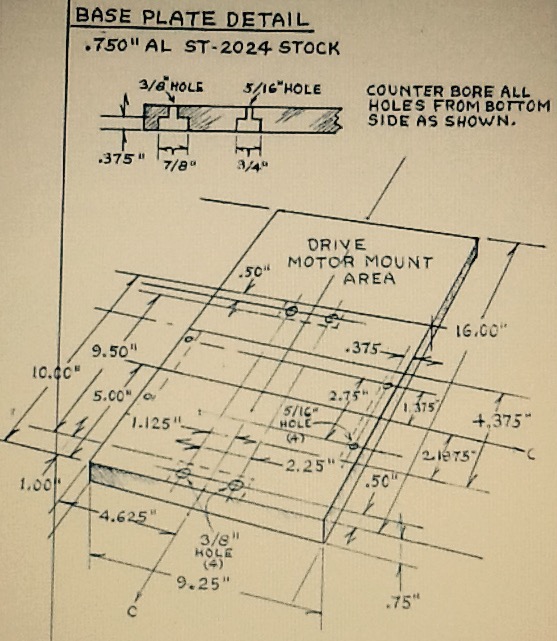 BASE PLATE DETAIL
.750" AL ST-2024 STOCK
3/8" HOLE
5/16" HOLE
COUNTER BORE ALL
HOLES FROM BOTTOM
SIDE AS SHOWN.
.375"
7/8"
3/4"
DRIVE
MOTOR MOUNT
AREA
.50"
16.00"
.375
9.50"
10.00"
2.75"
1.375"
4.375"
5.00"
5/16"
HOLE
(4)
1.125"
2.25"
2.1875"
C
.50"
1.00"
4.625"
3/8"
HOLE
(4)
9.25"
.75"
C